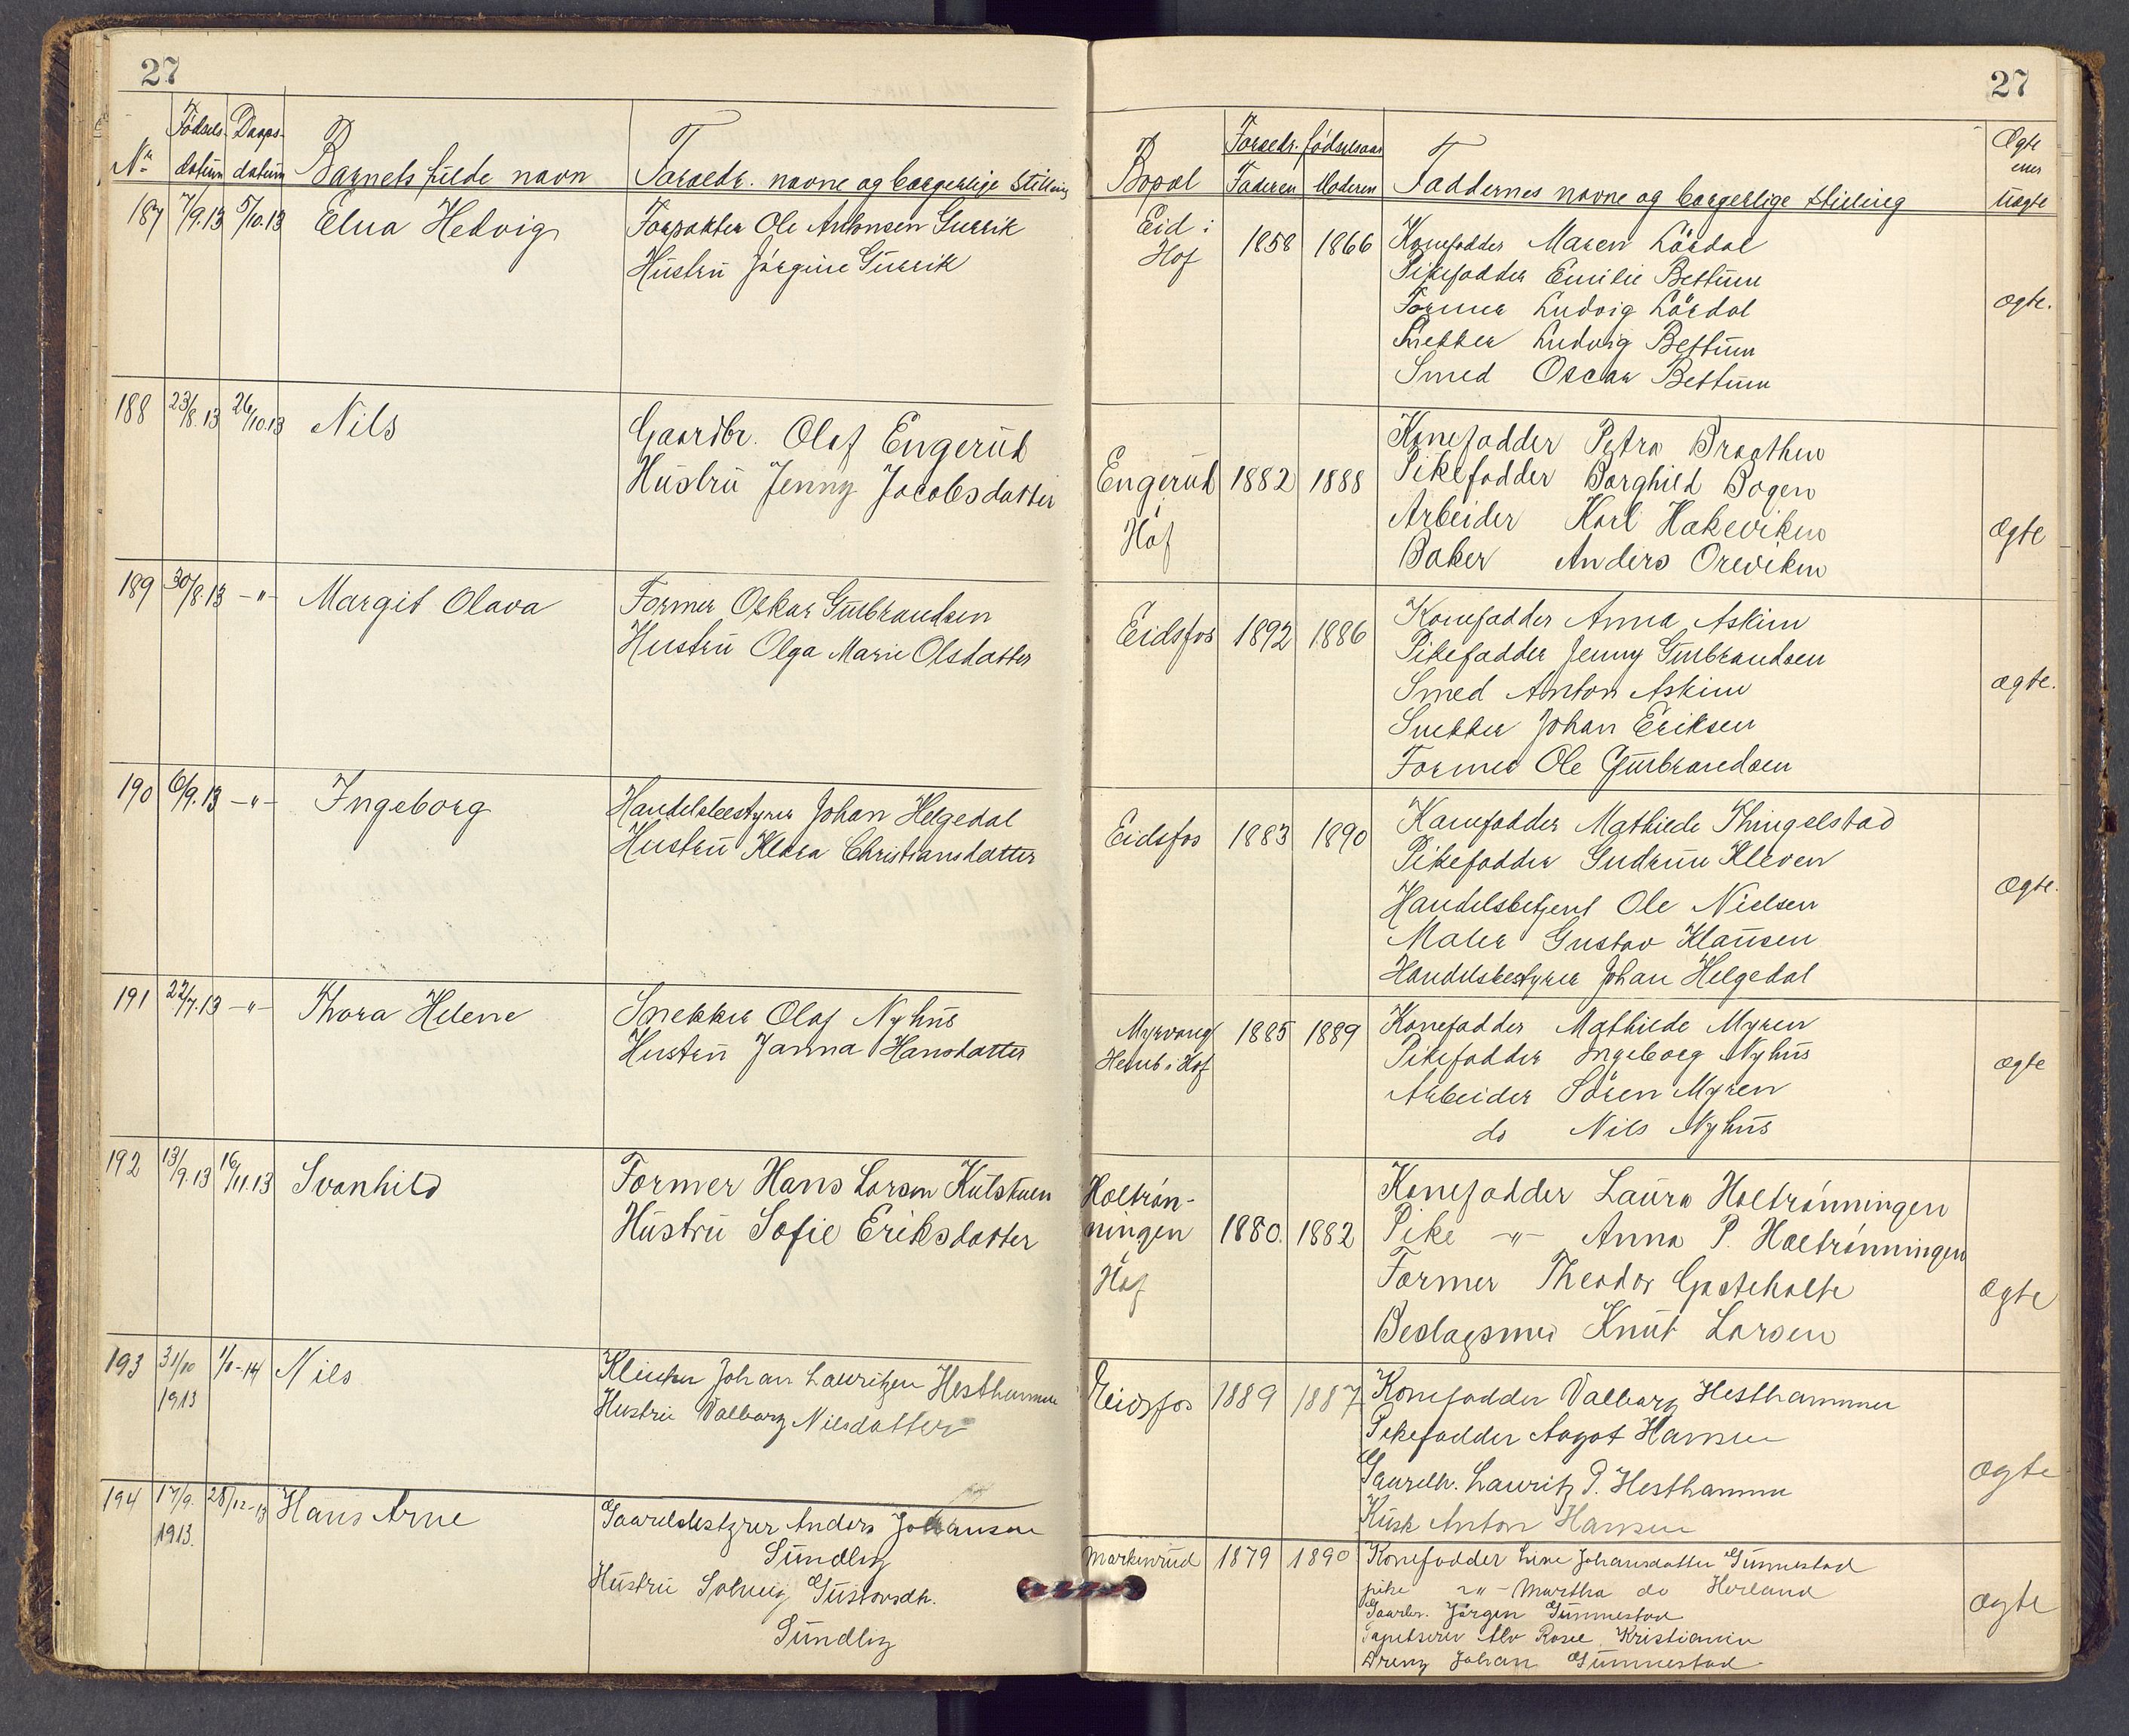 27
27
Nr
Fødsels- datum
Daaps- datum
Barnets fulde navn
Forældr. navne og borgerlige Stilling
Bopæl
Forældr. fødselsaar
Faderen
Moderen
Faddernes navne og borgerlige stilling
Ægte
eller
uægte
187 7/9.13 5/10.13 Elna Hedvig
Forpakter Ole Antonsen Gurrik
Hustru Jörgine Gurrik
Eid i
Hof
1858 1866
Konefadder Maren Lördal
Pikefadder Emilie Bettum
Former Ludvig Lördal
Snekker Ludvig Bettum
Smed Oscar Bettum
ægte.
188 23/8.13 26/10.13 Nils
Gaardbr. Olaf Engerud
Hustru Jenny Jacobsdatter
Engerud
Hof
1882 1888
Konefadder Petra Braathen
Pikefadder Borghild Bogen
Arbeider Karl Hakeviken
Baker Anders Oreviken
Ægte
189 30/8.13 -"- Margit Olava
Former Oskar Gulbrandsen
Hustru Olga Marie Olsdatter
Eidsfos 1892 1886
Konefadder Anna Askim
Pikefadder Jenny Gulbrandsen
Smed Anton Askim
Snekker Johan Eriksen
Former Ole Gulbrandsen
ægte.
190 6/9.13 -"- Ingeborg
Handelsbestyrer Johan Helgedal
Hustru Klara Christiansdatter
Eidsfos 1883 1890
Konefadder Mathilde Thingelstad
Pikefadder Gudrun Kleven
Handelsbetjent Ole Nielsen
Maler Gustav Klausen
Handelsbestyrer Johan Helgedal
Ægte.
191 22/7.13 -"- Thora Helene
Snekker Olaf Nyhus
Hustru Janna Hansdatter
Myrvang
i Hof
1885 1889
Konefadder Mathilde Myren
Pikefadder Ingeborg Nyhus
Arbeider Sören Myren
do Nils Nyhus
ægte
192 13/9.13 16/11.13 Svanhild
Former Hans Larsen Kulstuen
Hustru Sofie Eriksdatter
Holtrøn-
ningen
Hof
1880. 1882
Konefadder Laura Holtrønningen
Pike -"- Anna P. Holtrønningen
Former Theodor Gosteholte
Beslagsmed Knut Larsen
Ægte
193 31/10 1913 1/1-14 Nils
Klinker Johan Lauritzen Hesthammer
Hustru Valborg Nilsdatter
Eidsfos 1889 1887
Konefadder Valborg Hesthammer
Pikefadder Aagot Hansen
Gaardbr. Lauritz P. Hesthammer
Kusk Anton Hansen
ægte
194 17/9. 1913. 28/12-13 Hans Arne
Gaardsbestyrer Anders Johansen
Sundby
Hustru Solveig Gustavsdtr.
Sundby
Markerud 1879 1890
Konefadder Line Johansdatter Gunnestad
pike -"- Martha do Herland
Gaardbr. Jörgen Gunnestad
Tapetserer Alv Rosee Kristiania
Dreng Johan Gunnestad
ægte